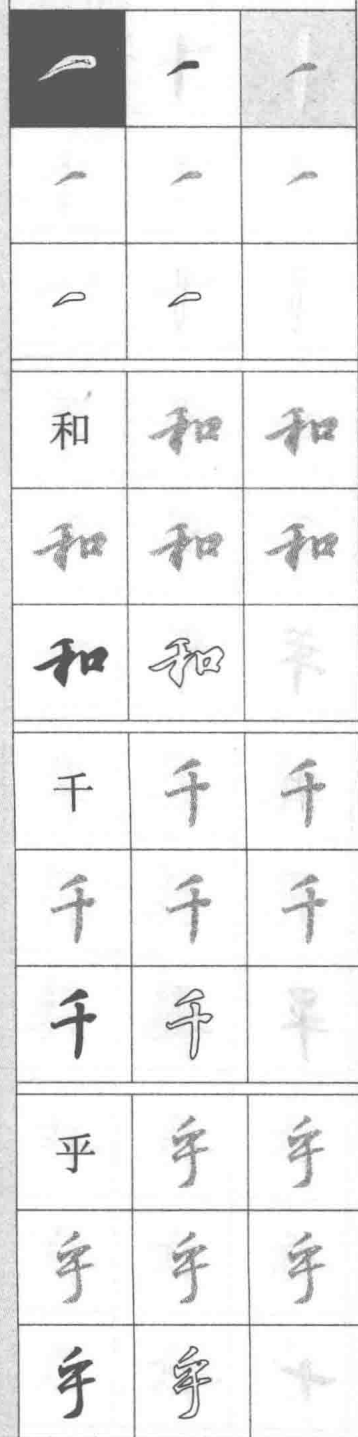 和 和 和
和 和 和
和 和
千 千 千
千 千 千
千 千
乎 乎 乎
乎 乎 乎
乎 乎